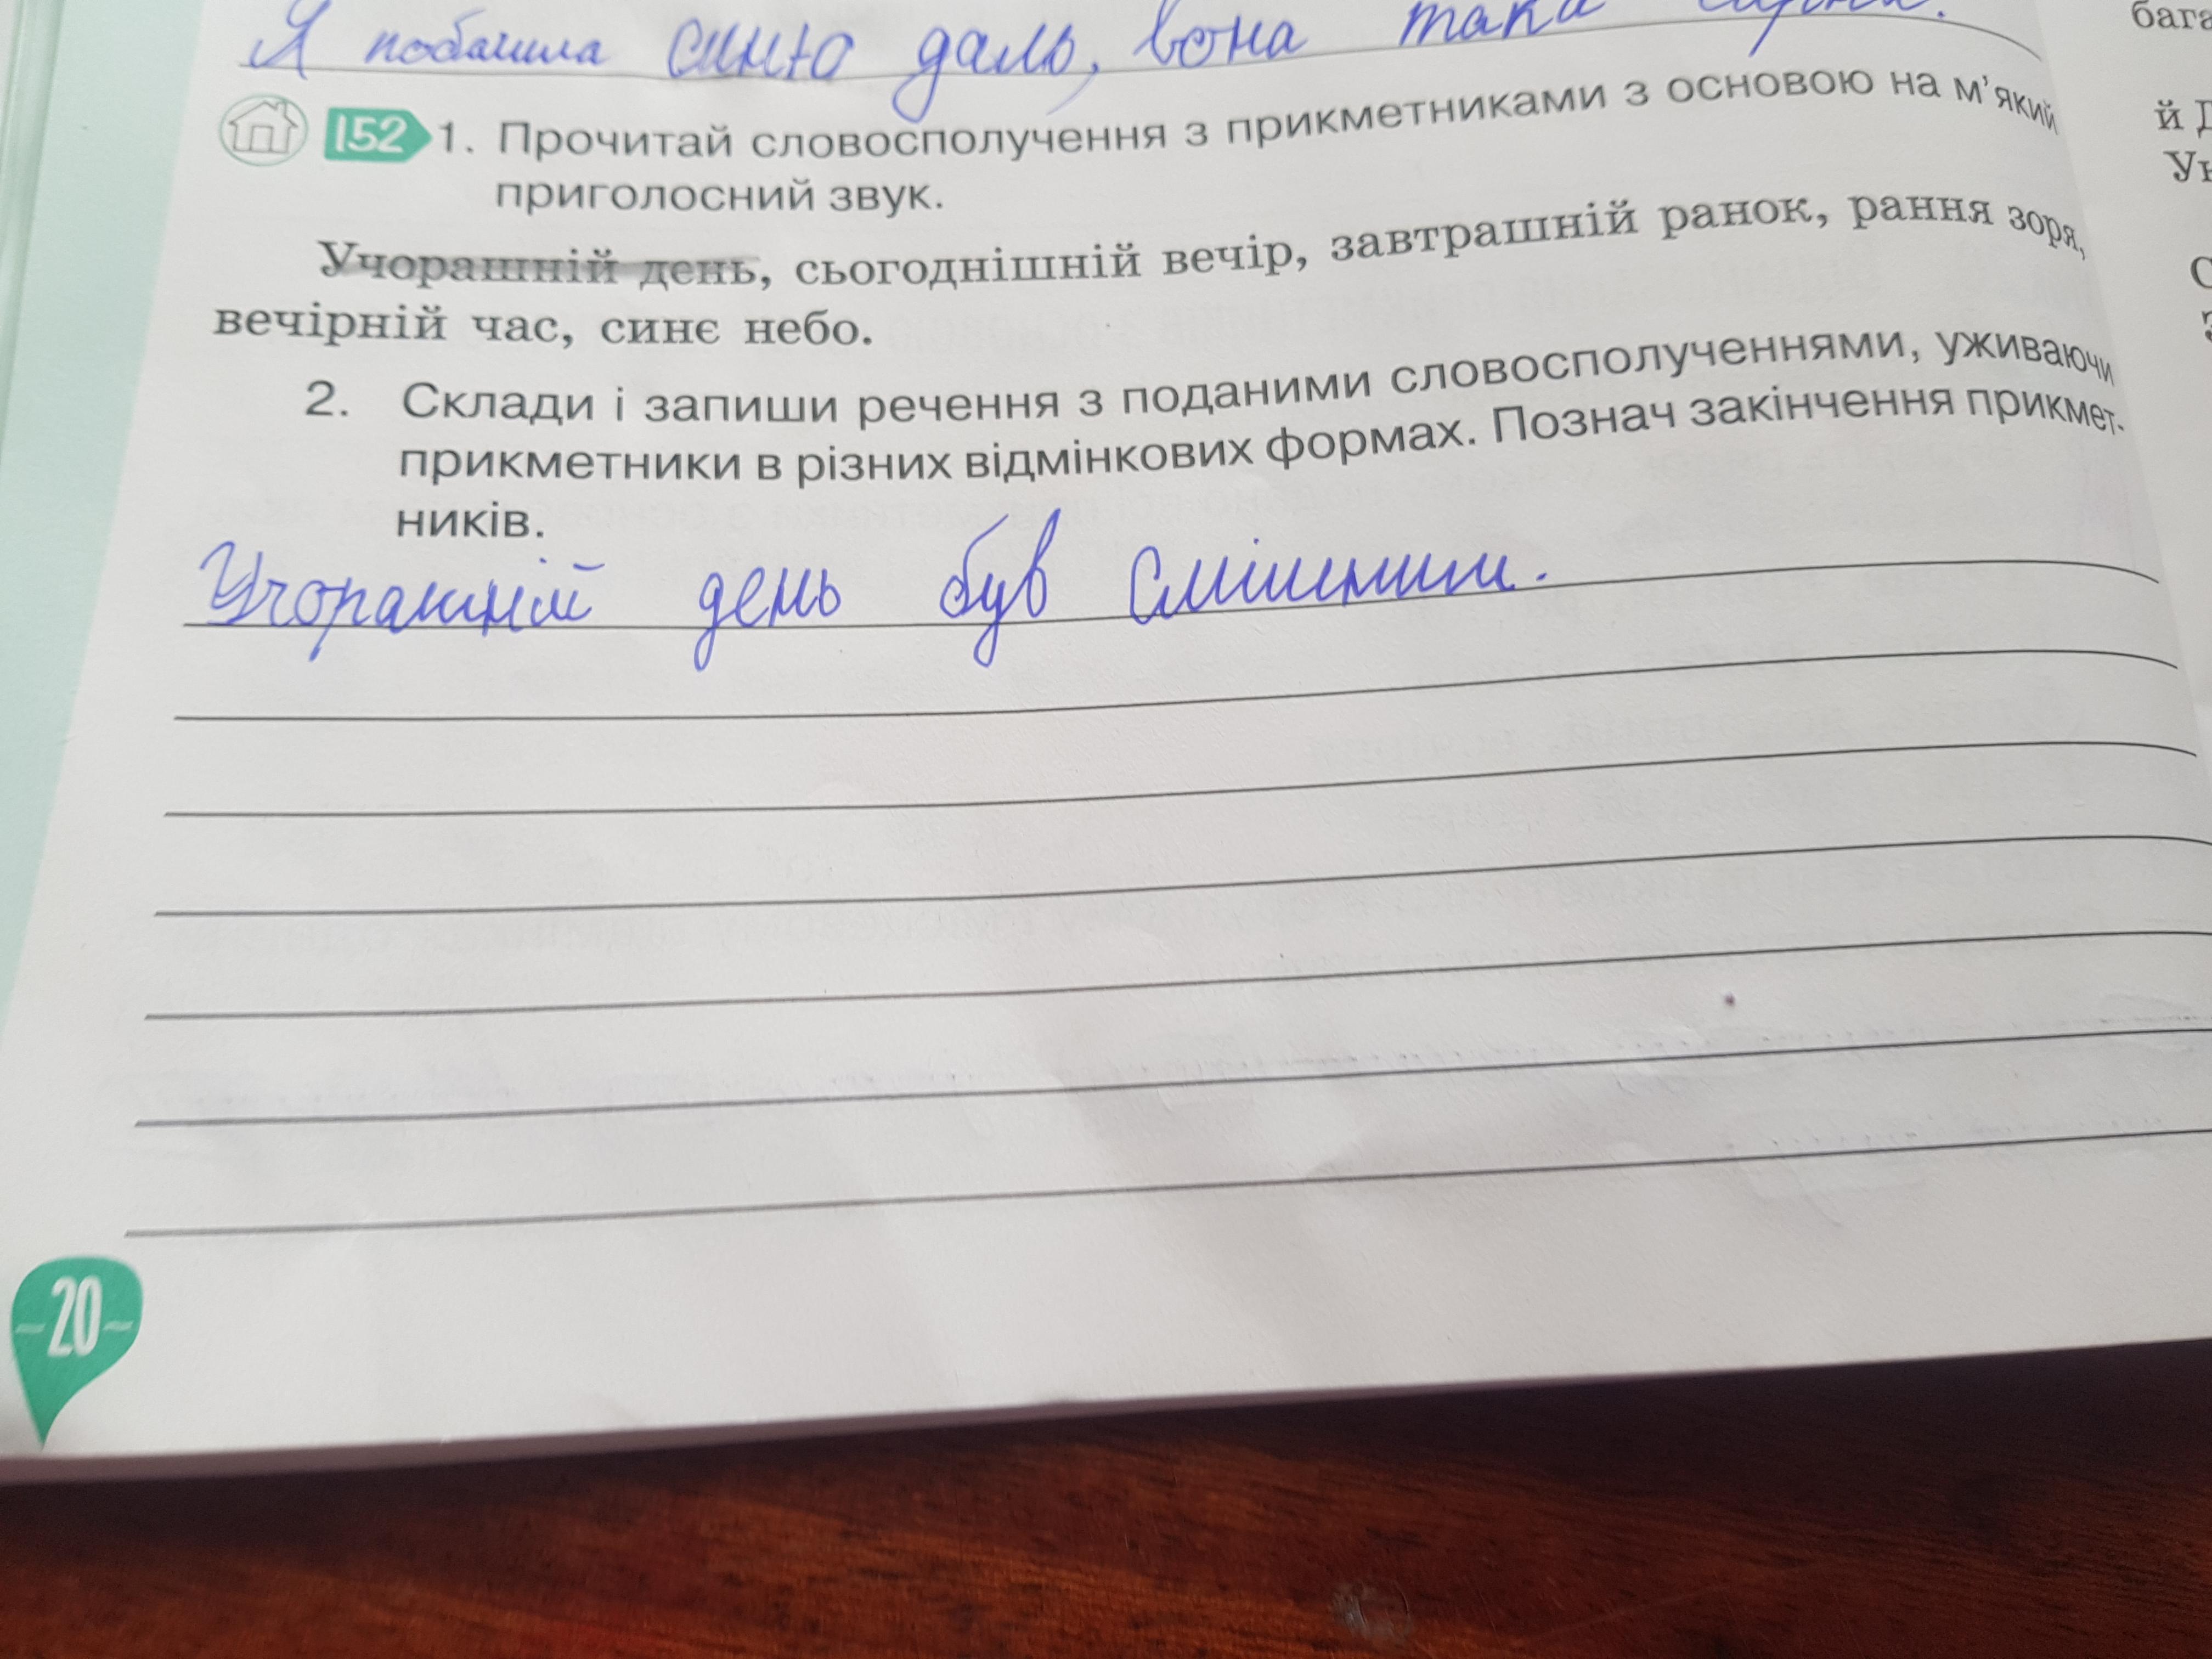 Я побачила синю даль, вона така
152 1. Прочитай словосполучення з прикметниками з основою на м'який
приголосний звук.
Учорашній день, сьогоднішній вечір, завтрашній ранок, рання зоря,
вечірній час, синє небо.
2. Склади і запиши речення з поданими словосполученнями, уживаючи
прикметники в різних відмінкових формах. Познач закінчення прикмет-
ників.
Учорашній день був смішним.
-20-
бага
й